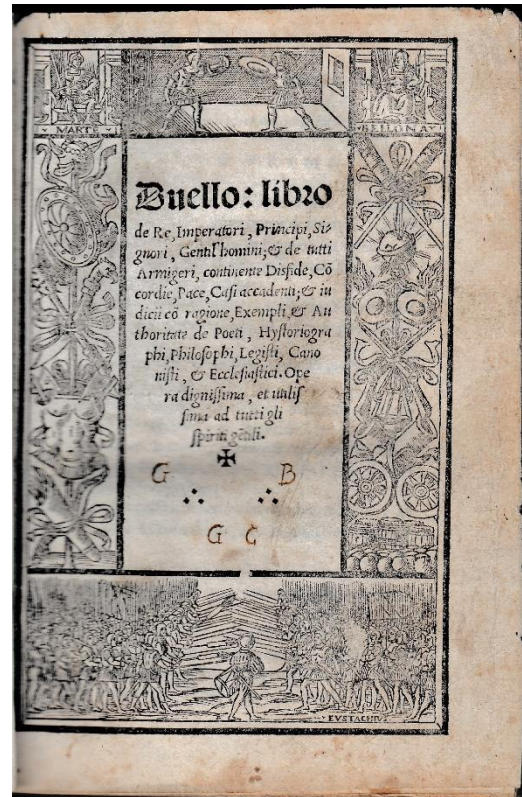 MARTE
BELLONA
Duello: libro
de Re, Imperatori, Principi, Si-
gnori, Gentil'homini; & de tutti
Armigeri, continente Disfide, Cō
cordie, Pace, Casi accadenti; & iu
dicii cō ragione, Exempli, & Au
thoritate de Poeti, Hystoriogra
phi, Philosophi, Legisti, Cano
nisti, & Ecclesiastici. Ope
ra dignissima, et utilis
sima ad tutti gli
spiriti gētili.
G B
G G
EVSTACHIVS